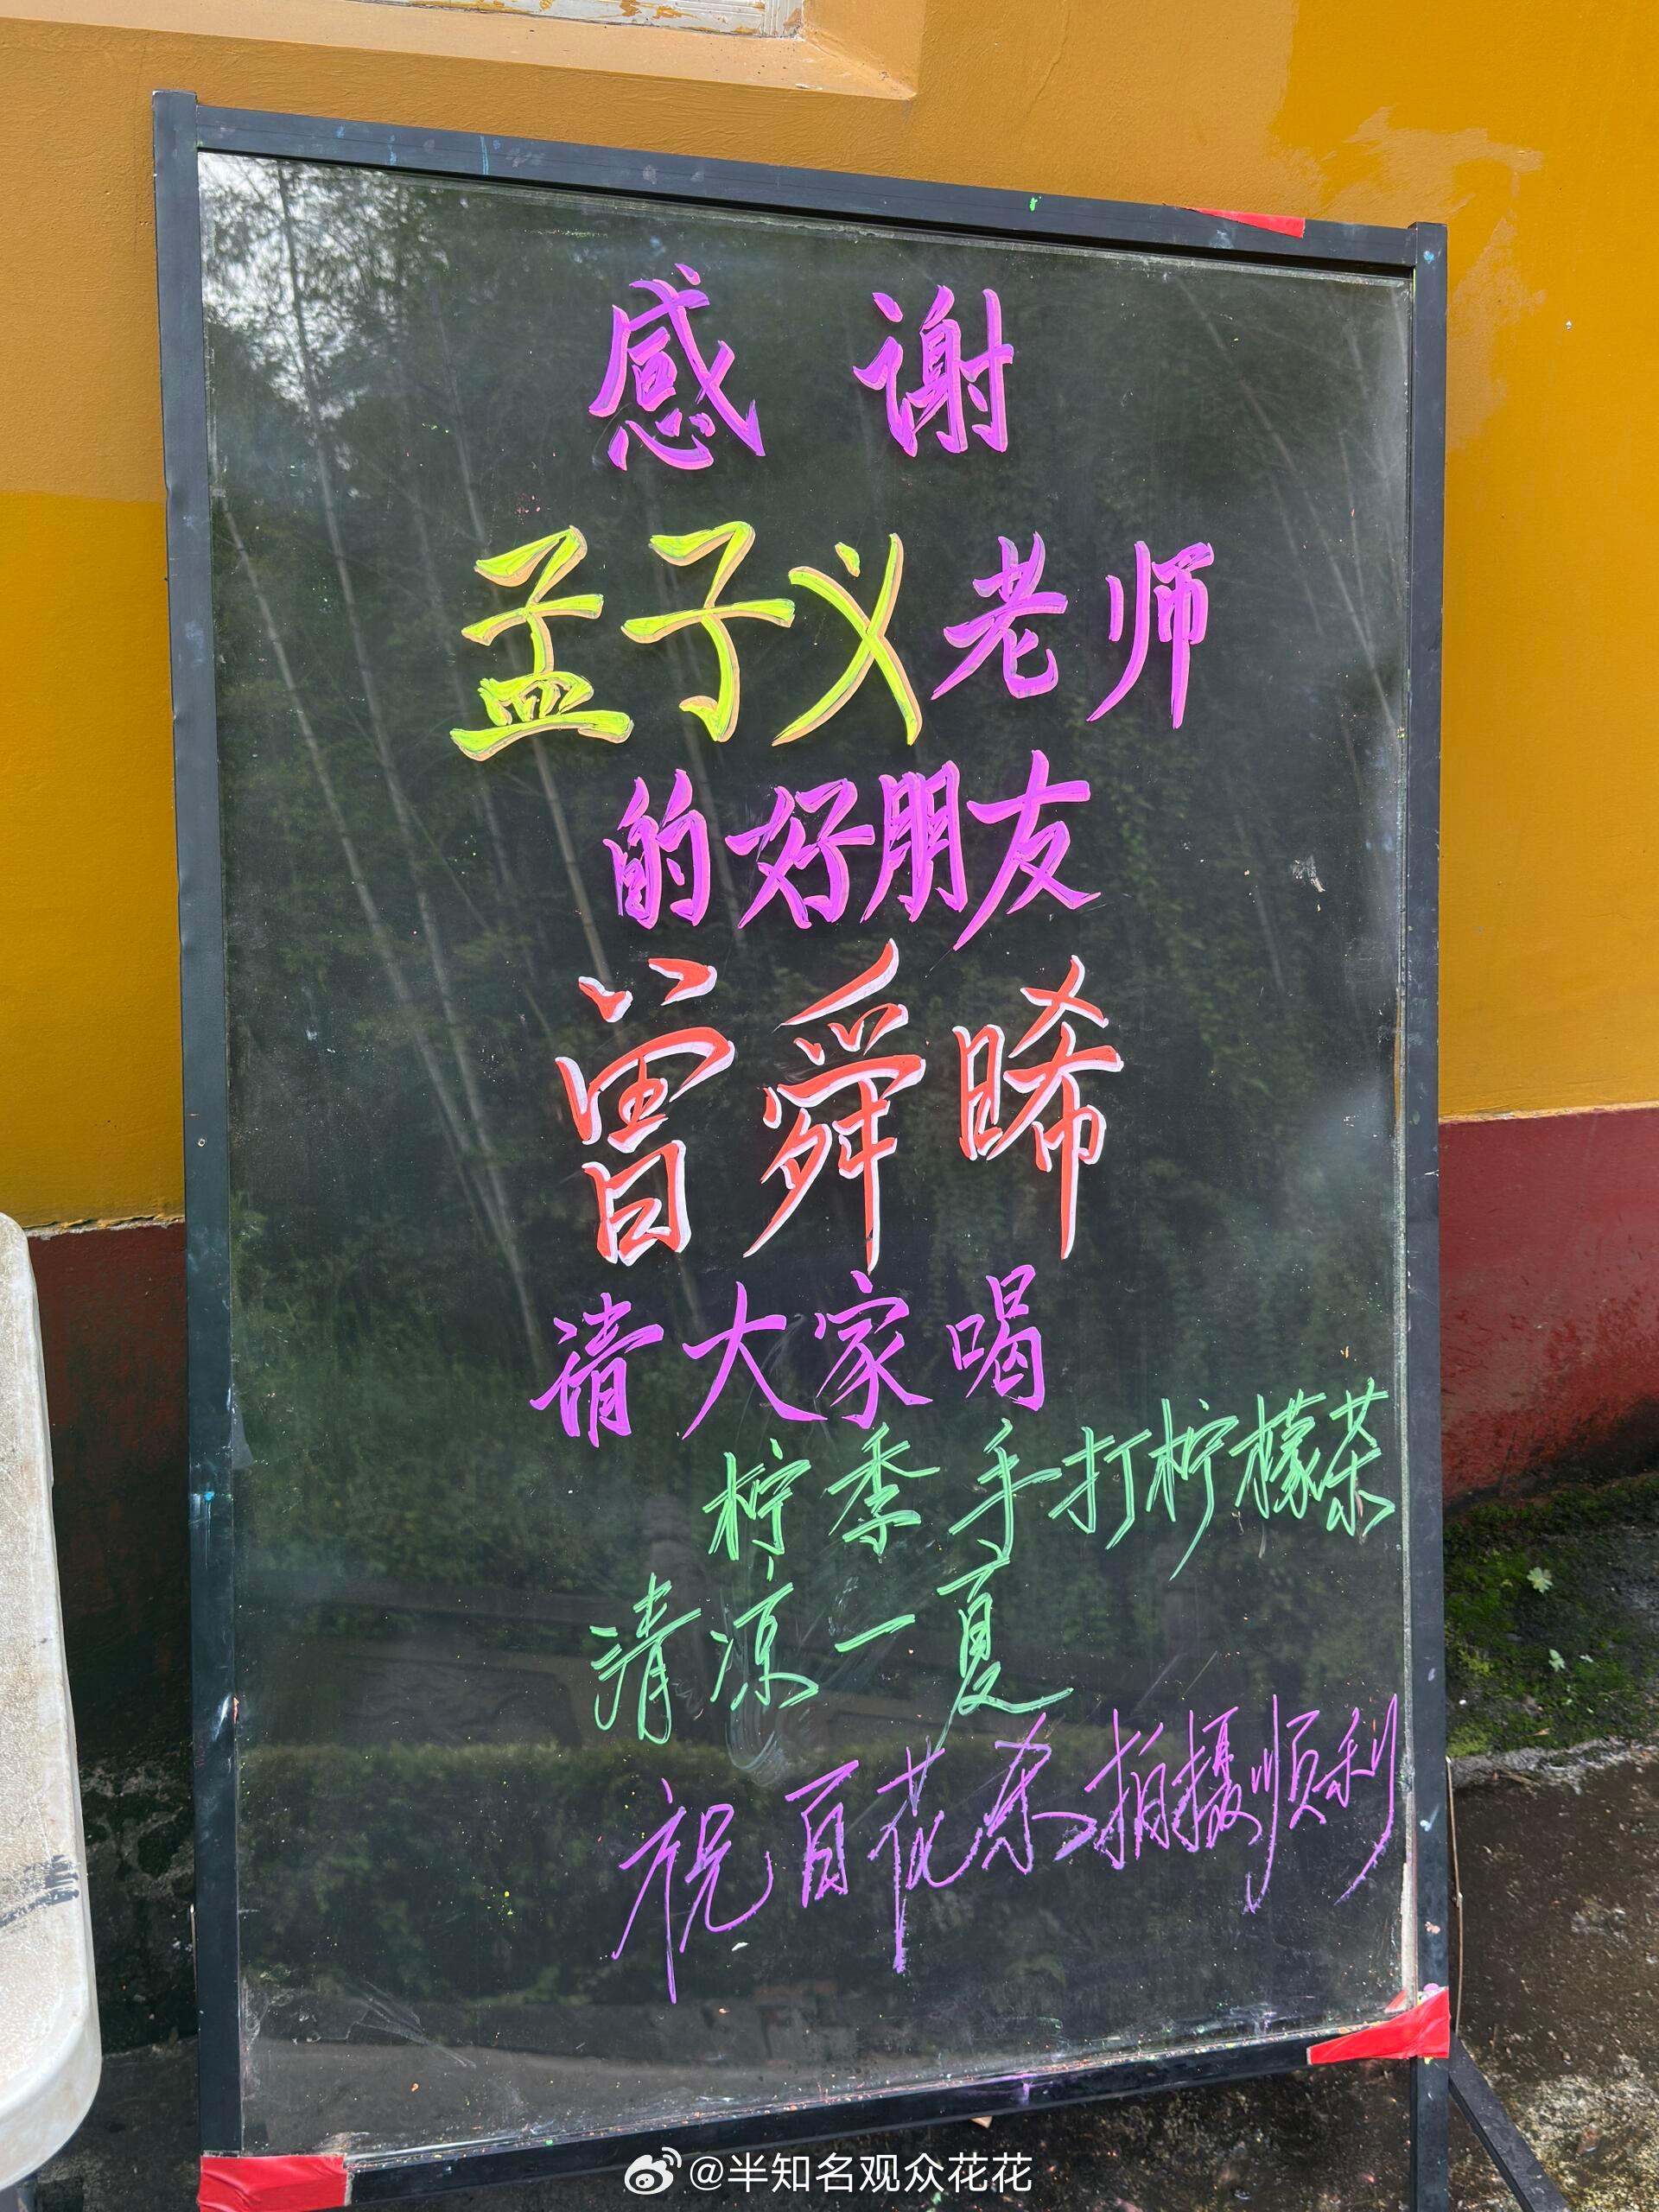 感谢
孟子义老师
的好朋友
曾舜晞
请大家喝
柠季手打柠檬茶
清凉一夏
祝百花杀拍摄顺利
@半知名观众花花